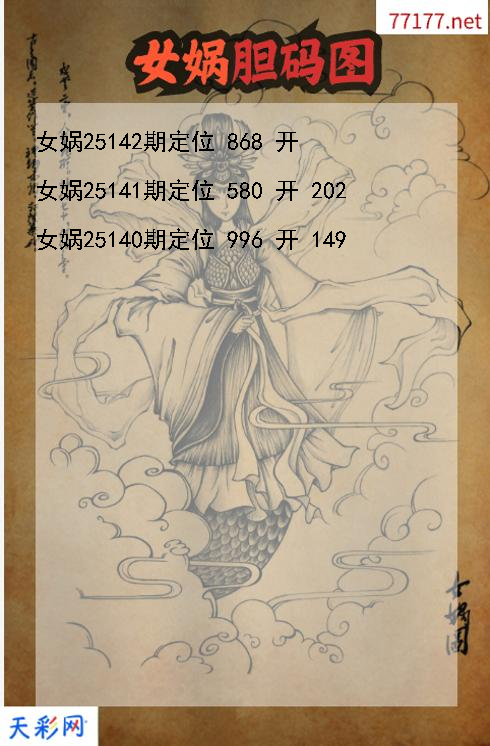 77177.net
女娲胆码图
女娲25142期定位 868 开
女娲25141期定位 580 开 202
女娲25140期定位 996 开 149
女娲图
天彩网